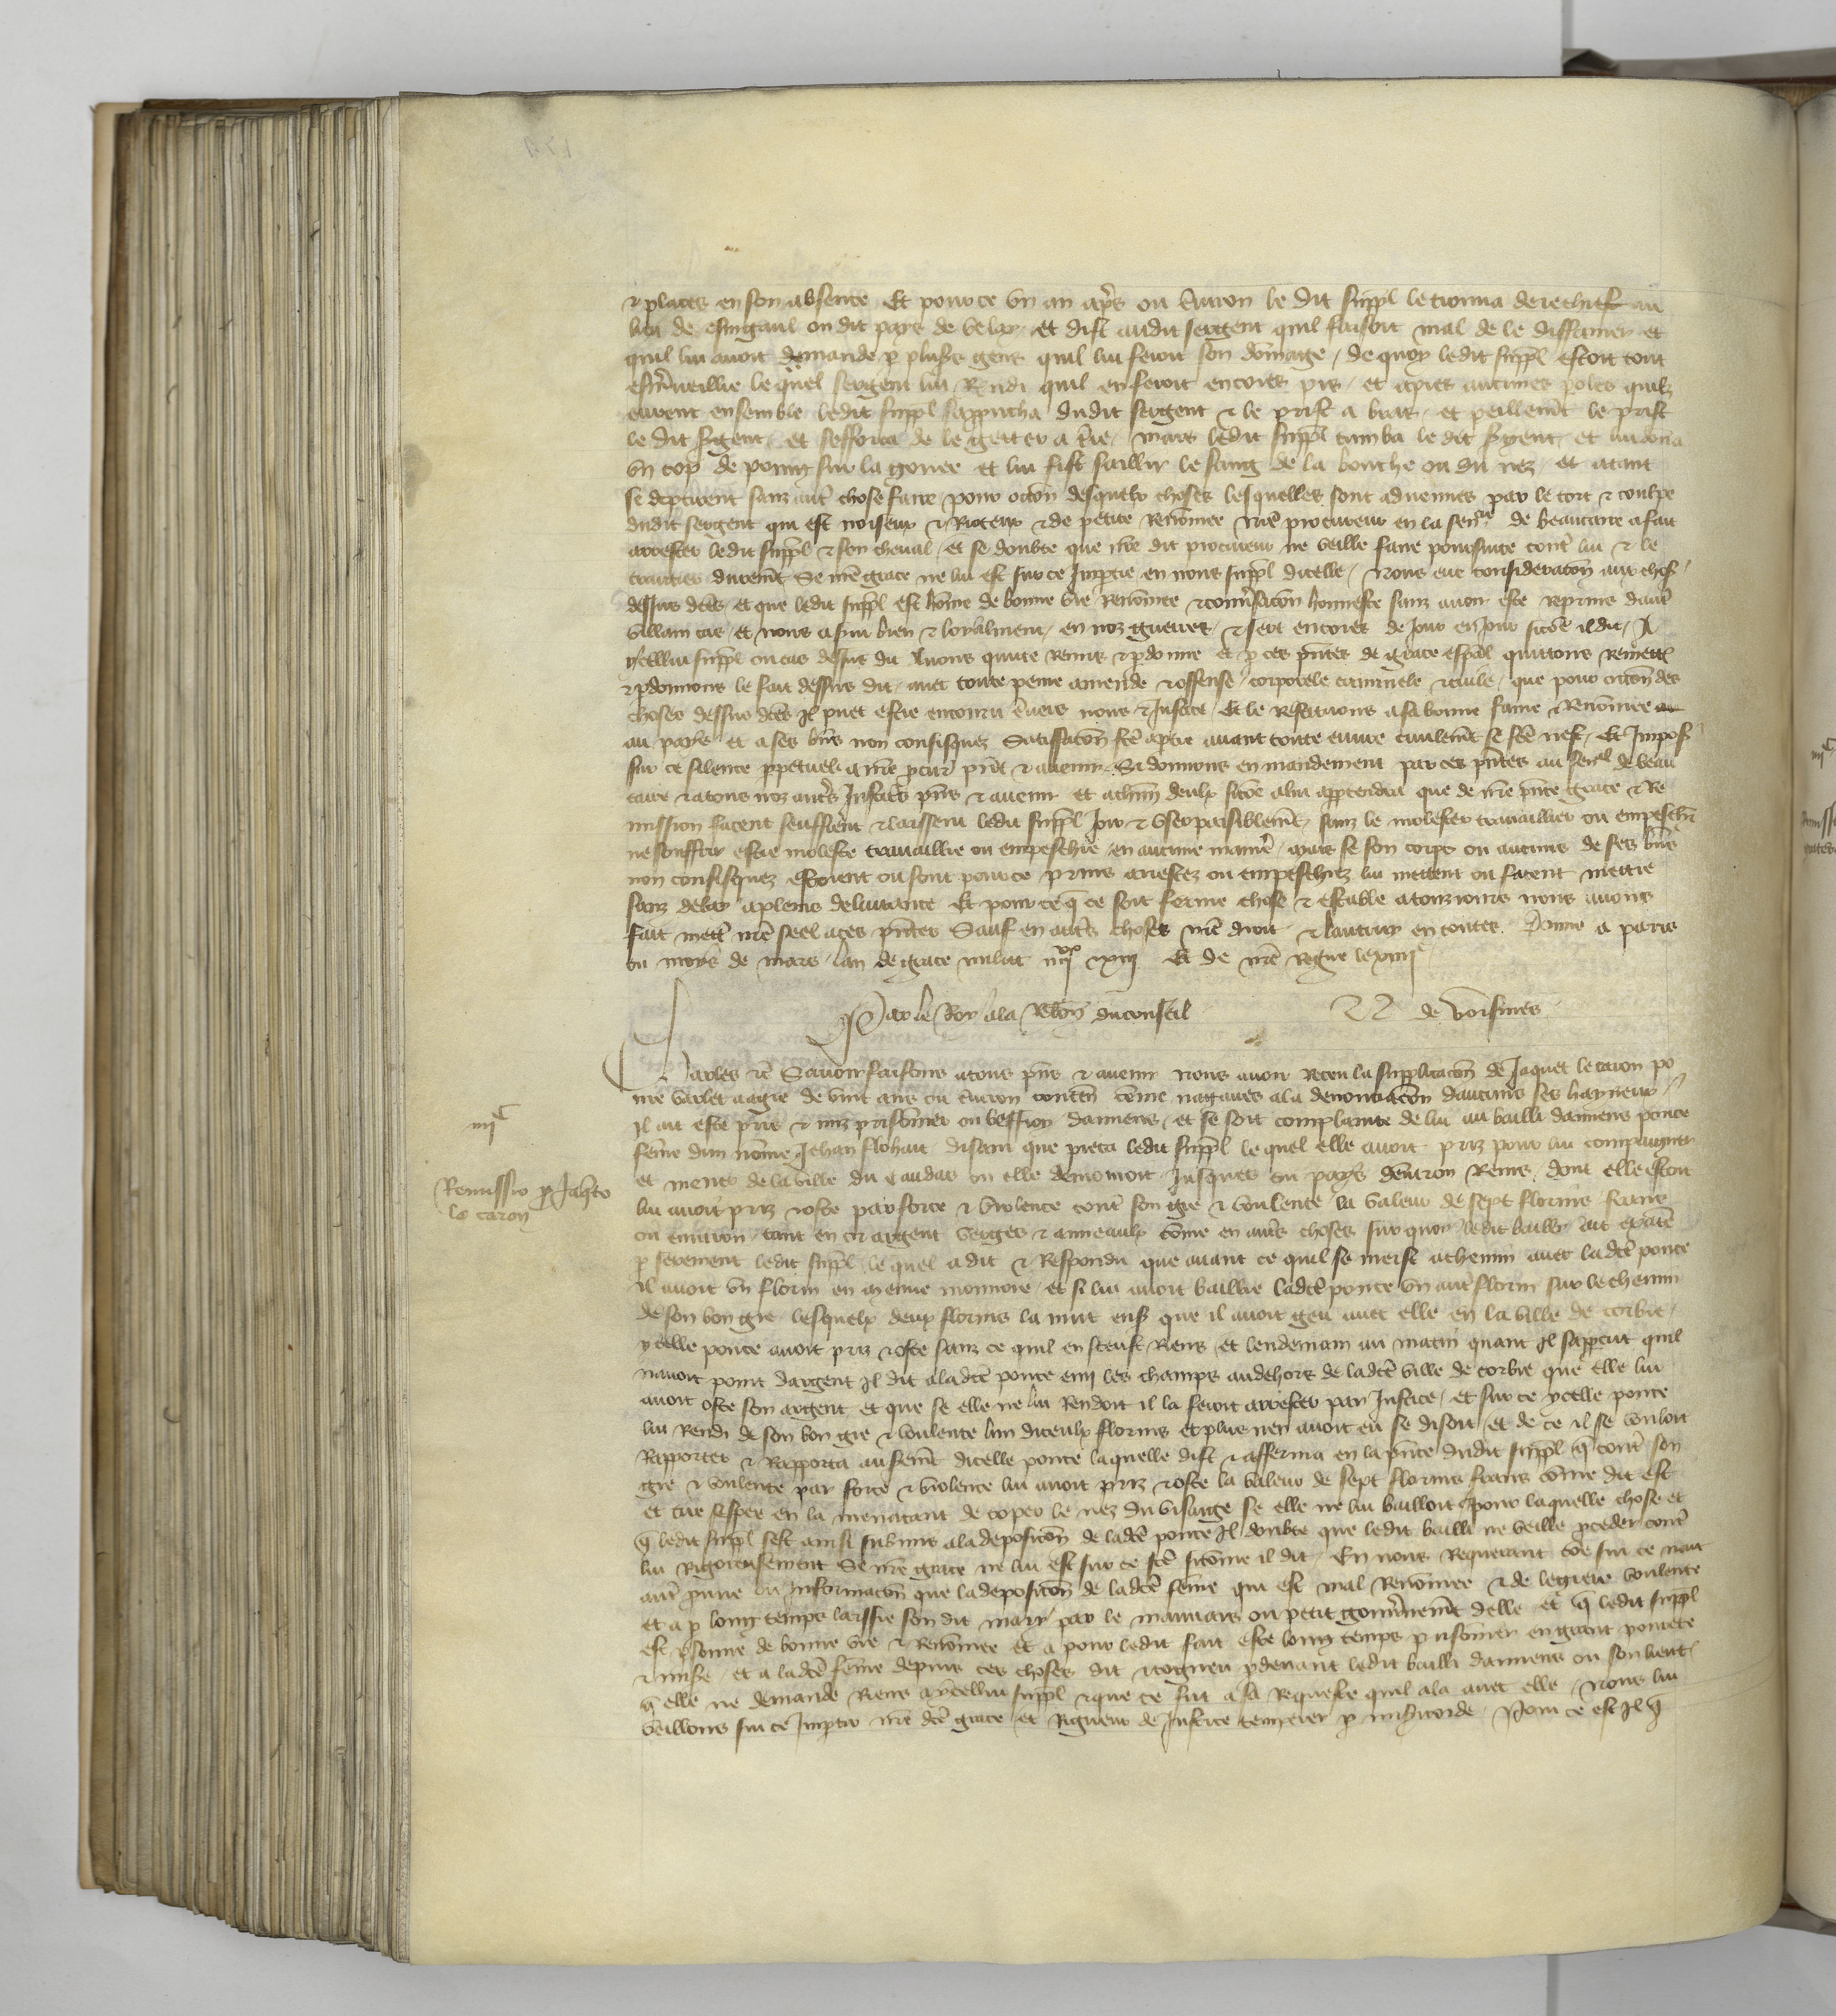 & places en son absence Et pource un an aps ou environ le dit suppl le trouva derechief au
lieu de esingaul ou dit pays de velay et dist audit sergent quil faisoit mal de le diffamer et
quil lui avoit demande p plusrs gens quil lui feroit son dommaige de quoy ledit suppl estoit tout
esmveillie lequel sergent lui Rndi quil en feroit encores pis et apres aucunes poles quilz
eurent ensemble ledit suppl sapproucha dudit sergent & le prist a bras et peillemt le prist
le dit sgent et sefforca de le getter a tre mais ledit suppl tumba le dit sgent et lui dona
un cop de poing sur la gorce et lui fist saillir le sang de la bouche ou du nez et atant
se deptirent sanz autr chose faire pour occon desquelx choses lesquelles sont advenues par le tort & coulpe
dudit sergent qui est noiseux & Rioteux & de petite Renommee nre procureur en la senrie de beaucaire a fait
arrester ledit suppl & son cheval et se doubte que nre dit procureur ne veille faire poursuite contr lui & le
traittier durement Se nre grace ne lui est sur ce Impartie en nous suppl dicelle Nous eue consideration aux chos
dessus dces et que ledit suppl est home de bonne vie Renommee & convsacon honneste sanz avoir este reprins dautr
villain cas et nous a svi bien & loyalment en noz guerres & sert encores de jour en jour sicome il dit A
ycellui suppl ou cas dessus dit Avons quitte Remis & pdonne et p ces pntes de grace espal quittons Remett
& pdonnons le fait dessus dit avec toute peine amende & offense corporele criminele & civile que pour occon des
choses dessus dces Il puet estre encouru envers nous & Justice Et le Restituons a sa bonne fame & Renommee
au pays et a ses bns non confisquez Satisfacon fce aptie avant toute euvre civilemt se fce nest Et Impos
sur ce silence ppetuel a nre pcur pnt & avenir Si donnons en mandement par ces pntes au senl de beau
caire & a tous noz autrs Justics pns & avenir et a chun deulx sicome a lui apptendra que de nre pnte grace & Re
mission facent seuffrent & laissent ledit suppl joir & user paisiblemt sanz le molester travaillier ou empeschr
ne souffrir estre moleste travaillie ou empeschie en aucune manre mais se son corps ou aucuns de ses bns
non confisquez estoient ou sont pource prins arrestez ou empeschiez lui mettent ou facent mettre
sanz delay a pleine delivrance Et pour ce q ce soit ferme chose & estable a tousjours nous avons
fait mettr nre seel a ces pntes Sauf en autrs choses nre droit & lautrui en toutes Donne a paris
ou mois de mars lan de grace mil ccc iiijxx & xiij Et de nre Regne le xiiije
Par le Roy a la Relacon du conseil de voisines
Charles &c Savoir faisons a tous pns & avenir nous avoir Receu la supplicacon de Jaquet le caron po
vre varlet aagie de vint ans ou environ conten come nagaires a la denonciacon daucuns ses hayneux
Il ait este pris & mis prisonnier ou beffroy damiens et se soit complainte de lui au bailli damiens ponce
feme dun nomme Jehan flohaut disant que pieca ledit suppl lequel elle avoit priz pour lui compaigner
et mener de la ville du caudas ou elle demouroit Jusques ou pays denviron Reins dont elle estoit
lui avoit priz & oste par force & violence contr son gre & voulente la valeur de sept florins frans
ou environ tant en or argent verges & anneaulx come en autrs choses sur quoy ledit bailli ait examine
p serement ledit suppl lequel a dit & Respondu que avant ce quil se meist a chemin avec ladce ponce
il avoit un florin en menue monnoie et si lui avoit baillie ladce ponce un autr florin sur le chemin
de son bon gre lesquelx deux florins la nuit ens que il avoit geu avec elle en la ville de corbie
ycelle ponce avoit priz & oste sanz ce quil en sceust Riens et lendemain au matin quant Il sappcut quil
navoit point dargent Il dit a ladce ponce emy les champs au dehors de ladce ville de corbie que elle lui
avoit oste son argent et que se elle ne lui Rendoit il la feroit arrester par Justice et sur ce ycelle ponce
lui Rendi de son bon gre & voulente lun diceulx florins et plus nen avoit eu se disoit et de ce il se vouloit
Rapporter & Rapporta au seremt dicelle ponce laquelle dist & afferma en la pnce dudit suppl q contr son
gre & voulente par force & violence lui avoit priz & oste la valeur de sept florins frans come dit est
et tire sespee en la menacant de coper le nez du visaige se elle ne lui bailloit pour laquelle chose et
q ledit suppl sest ainsi submis a la deposicon de ladce ponce Il doubte que ledit bailli ne veille pceder contr
lui Rigoreusement Se nre grace ne lui est sur ce fce sicomme il dit En nous Requerant come sur ce nait
autr preuve ou Informacon que la deposicon de ladce feme qui est mal Renommee & de legiere voulente
et a p long temps laissie son dit mary par le mauvais ou petit gouvnemt delle et q ledit suppl
est psonne de bonne vie & Renommee et a pour ledit fait este long temps prisonnier en grant povrete
& misere et a ladce feme depuis ces choses dit & cogneu pdevant ledit bailli damiens ou son lieut
q elle ne demande Riens a ycellui suppl & que ce fut a sa Requeste quil ala avec elle Nous lui
veillons sur ce Imptir nre dce grace et Rigueur de Justice temperer p misicorde Pour ce est Il q
iijc
Remissio p Jaqto
le caron